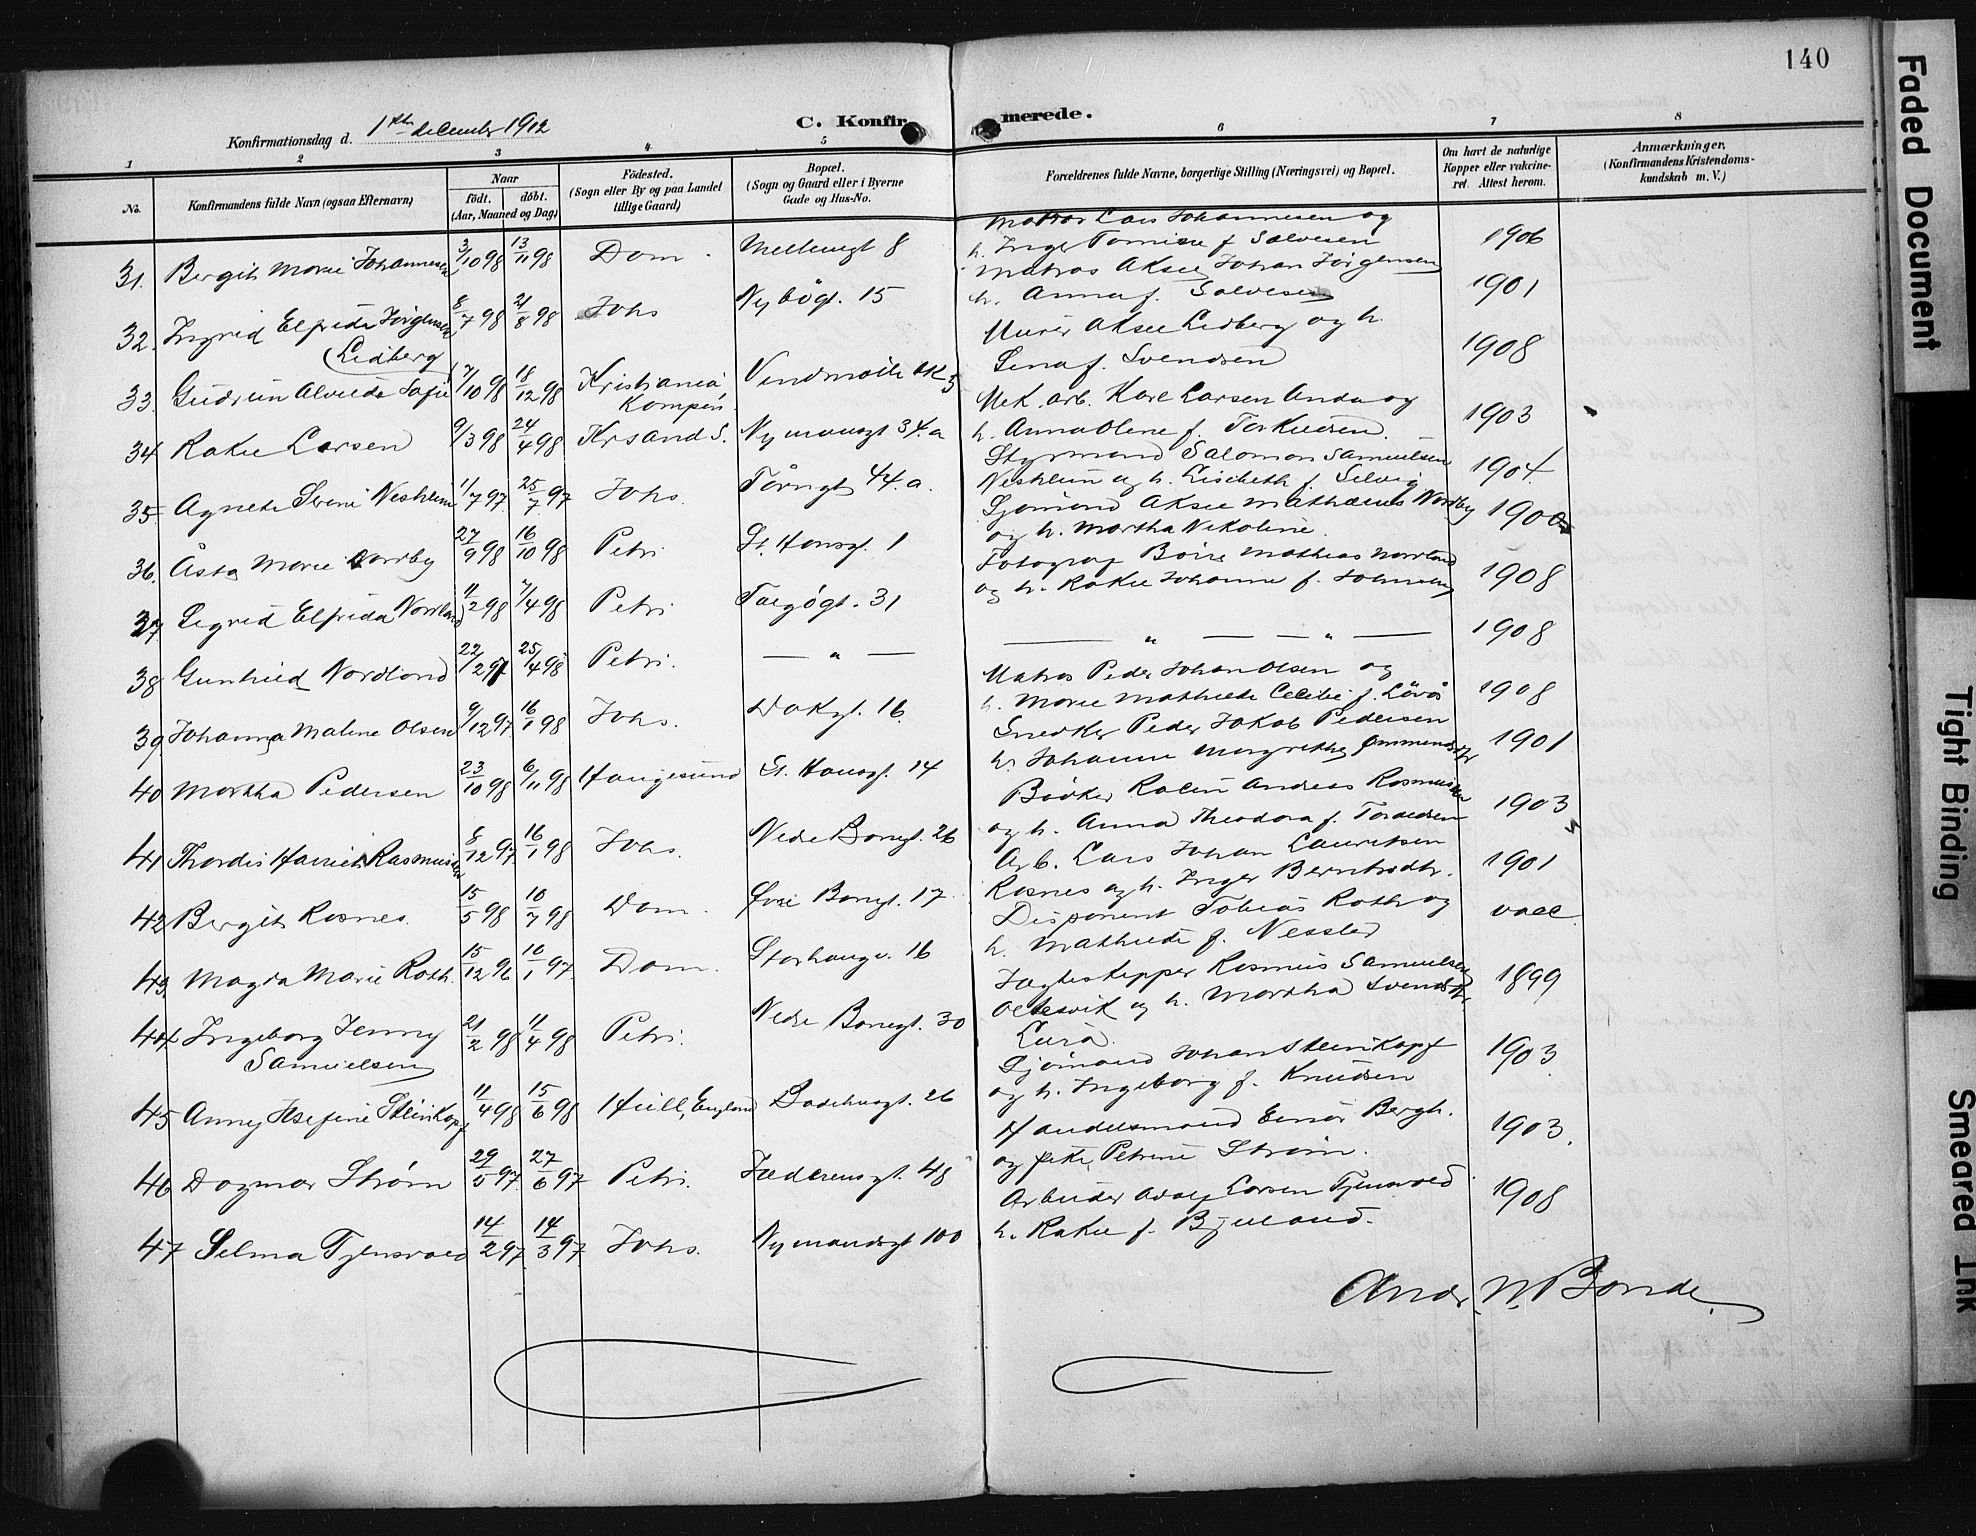 140
Konfirmationsdag d. 1ste december 1912
C. Konfirmerede.
1 2 3 4 5 6 7 8
No.
Konfirmandens fulde Navn (ogsaa Efternavn)
Naar
født. døbt.
(Aar, Maaned og Dag)
Fødested.
(Sogn eller By og paa Landet
tillige Gaard)
Bopæl.
(Sogn og Gaard eller i Byerne
Gade og Hus-No.
Forældrenes fulde Navne, borgerlige Stilling (Næringsvei) og Bopæl.
Om havt de naturlige
Kopper eller vakcine-
ret. Attest herom.
Anmærkninger.
(Konfirmandens Kristendoms-
kundskab m. V.)
Matros Lars Johannesen og
31. Bergit Marie Johannesen 3/10 98 13/11 98 Dom. Mellemgt 8 h. Inger Tomine f. Salvesen 1906
Matros Aksel Johan Jørgensen
32. Ingrid Elfrida Jørgensen 8/7 98 21/8 98 Johs Nybøgt. 15 h. Anna f. Salvesen 1901
Murer Aksel Lidberg og h.
(Lidberg
33. Gudrun Alvilda Sofie 7/10 98 18/12 98 Kristiania Kampen. Vindmølle bk 5 Lina f. Svendsen 1908
Mek. arb. Karl Larsen Anda og
34 Rakel Larsen 9/3 98 24/4 98 Krsand S. Nymansgt 34.a h. Anna Oline f. Torkildsen. 1903
Styrmand Salomon Samuelsen
35. Agnete Serine Nesheim 11/7 97 25/7 97 Johs. Tårngt 44.a. Nesheim og h. Lisbeth f. Selvig 1904.
Sjømand Aksel Mathæus Nordby
36. Åsta Marie Nordby 27/9 98 16/10 98 Petri St. Hansgt. 1 og h. Martha Nikoline. 1900
Fotograf Børre Mathias Nordland
37. Sigrid Elfrida Nordland 11/2 98 7/4 98 Petri Tøgøgt. 31 og h. Rakel Johanne f. Johnsen 1908
38 Gunhild Nordland 22/12 97 25/4 98 Petri. — " — — " — — " — 1908
Matros Peder Johan Olsen og
39. Johanna Maline Olsen 9/12 97 16/1 98 Johs. Dokgt. 16. h. Marie Mathilde Cecilie f. Løvås 1908
Snedker Peder Jakob Pedersen
40 Martha Pedersen 23/10 98 6/11 98 Haugesund St. Hansgt. 14 h. Johanne Margrethe Ommundsdtr 1901
Bødker Rolin Andreas Rasmussen
41 Thordis Harriet Rasmussen 8/12 97 16/1 98 Johs. Nedre Banegt. 26 og h. Anna Theodora f. Tordsen 1903
Arb. Lars Johan Lauritsen
42 Bergit Rosnes. 15/5 98 10/7 98 Dom. Øvre Banegt. 17 Rosnes og h. Inger Berntsdtr. 1901
Disponent Tobias Roth og
43. Magda Marie Roth. 15/12 96 10/1 97. Dom. Storhaugv. 16 h. Mathilde f. Nessler vacc
Jægtskipper Rasmus Samuelsen
44 Ingeborg Jenny Samuelsen 21/2 98 11/4 98 Petri. Nedre Banegt. 30 Oltesvik og h. Martha Svendsdtr. Lura. 1899
Sjømand Johan Steinkopf
45 Anny Josefine Steinkopf 11/4 98 15/6 98 Hull, England Badehusgt. 26 og h. Ingeborg f. Knudsen 1903.
Handelsmand Einar Bergh.
46 Dagmar Strøm 29/5 97 27/6 97 Petri. Jæderensgt. 48 og pike Petrine Strøm. 1903.
Arbeider Adolf Larsen Tjensvold
47 Selma Tjensvold 14/2 97. 14/3 97 Johs. Nymandsgt 100 h. Rakel f. Bjelland. 1908
Andr. N. Bonde.
Faded Document
Tight Binding
Smeared Ink